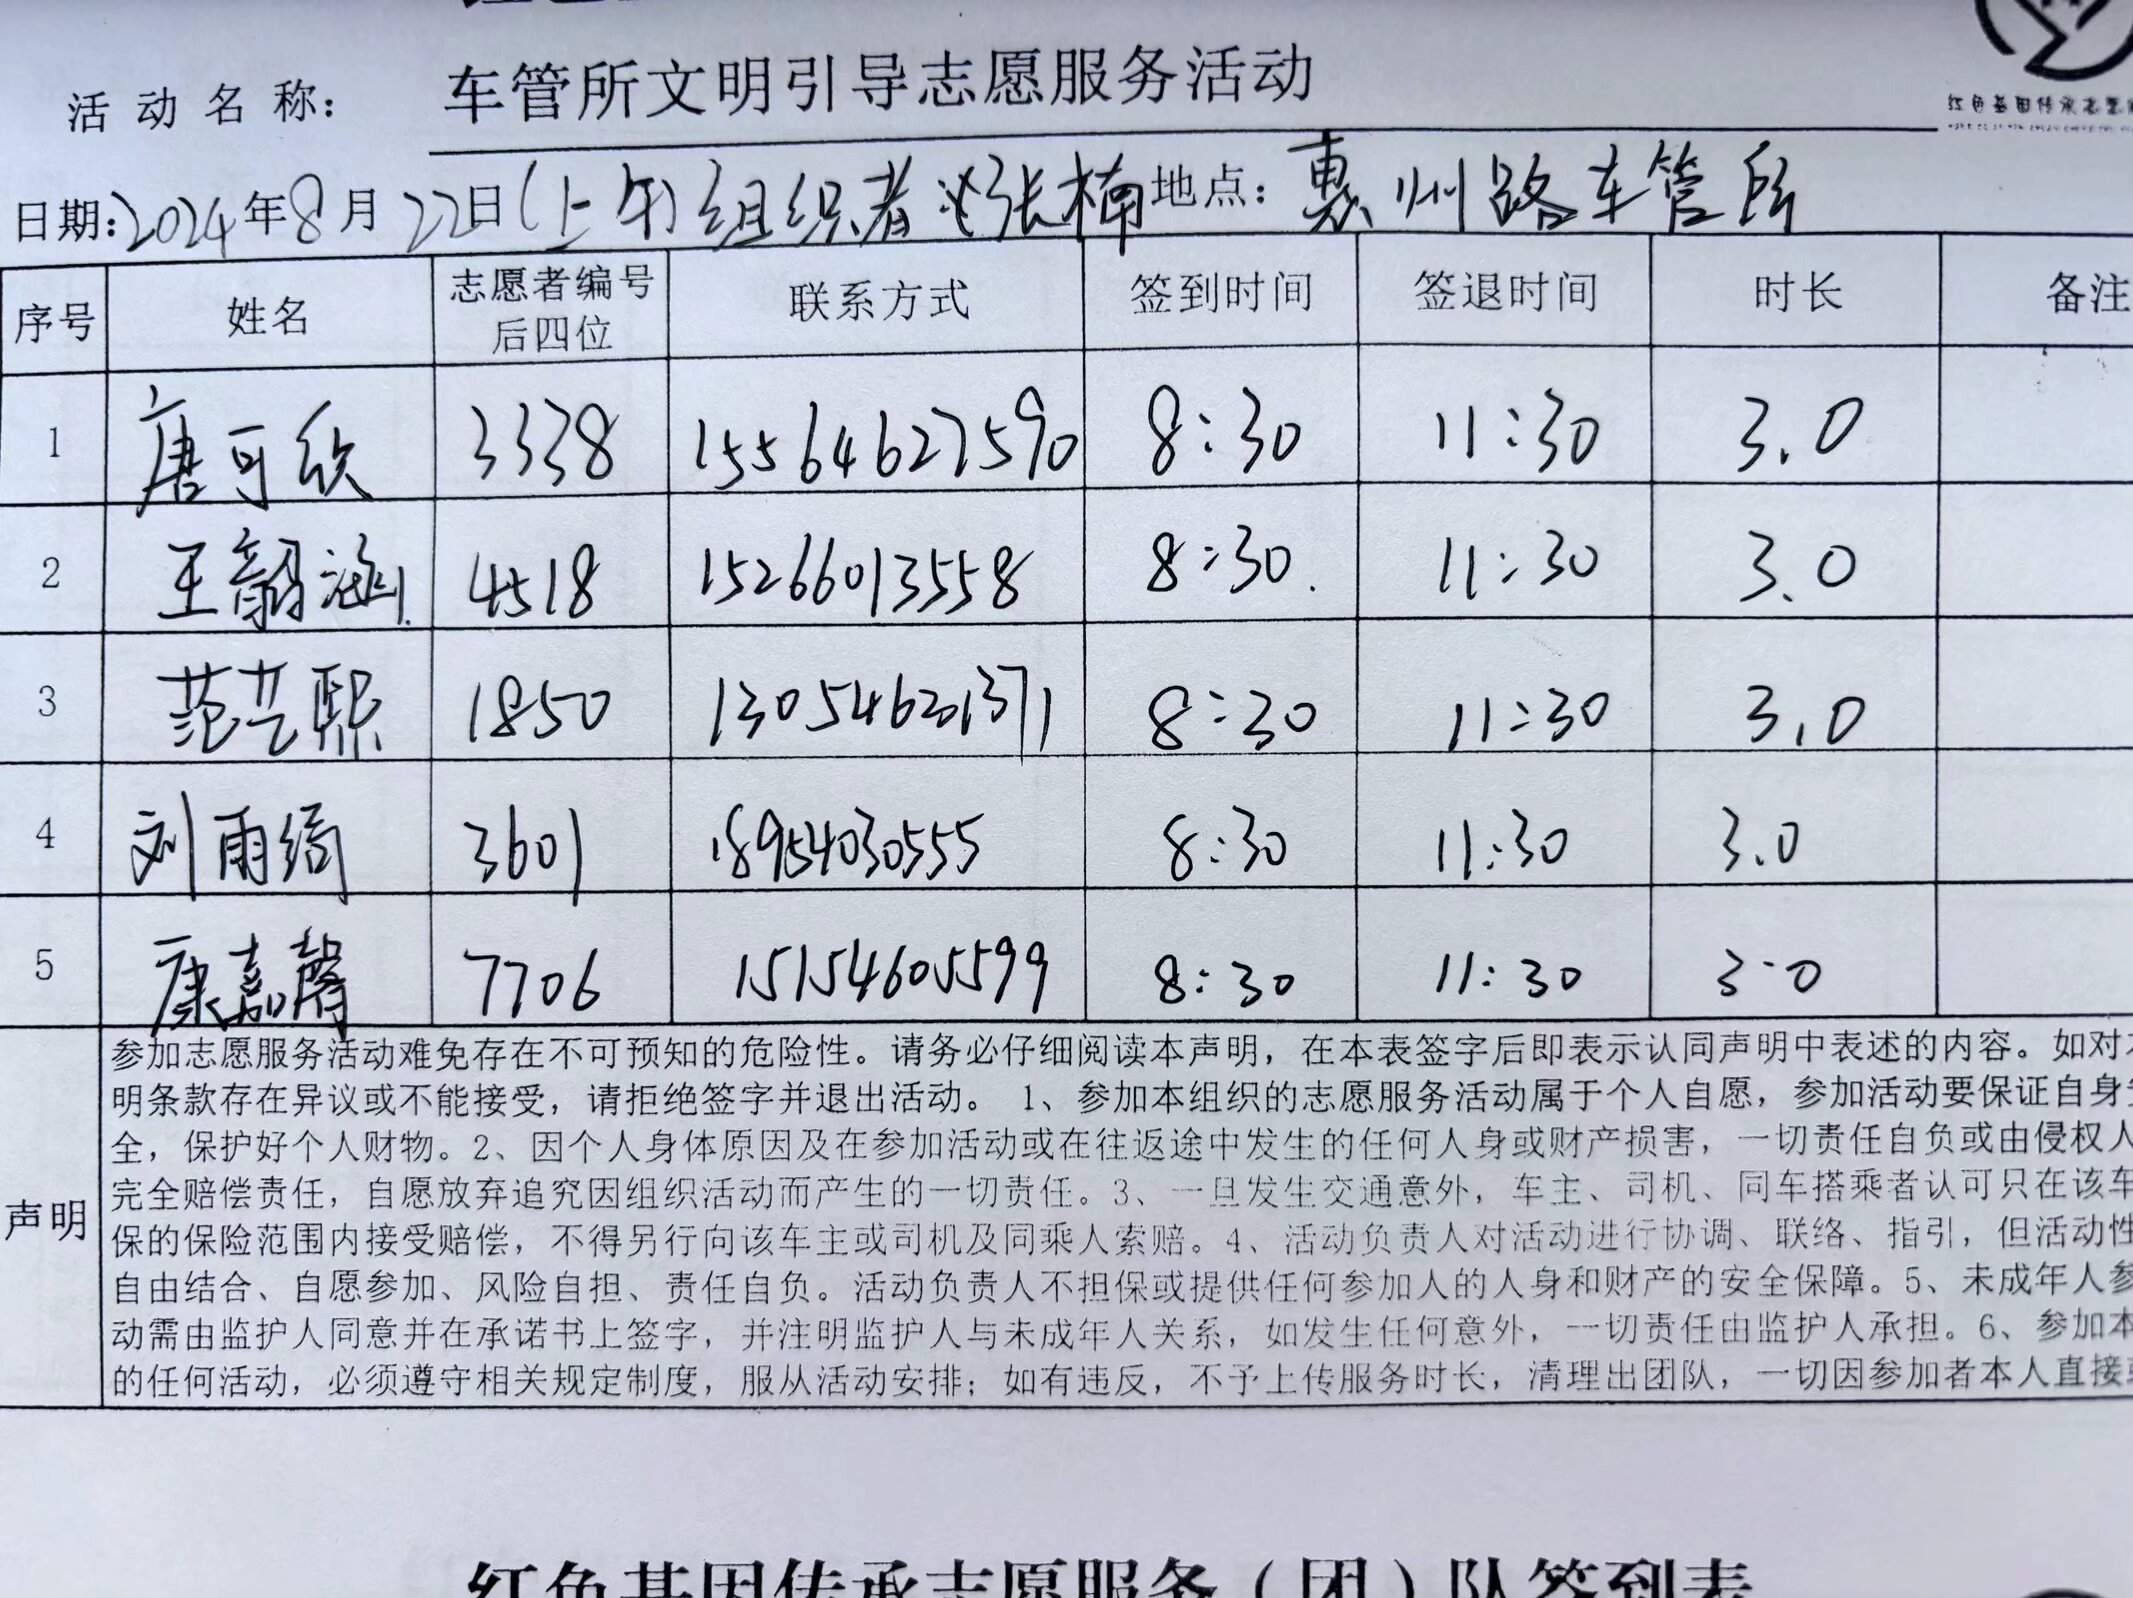 活动名称： 车管所文明引导志愿服务活动
红色基因传承志愿
日期:2024年8月22日(上午) 组织者:张楠 地点：惠州路车管所
序号 姓名 志愿者编号后四位 联系方式 签到时间 签退时间 时长 备注
1 唐可欣 3338 15564627590 8:30 11:30 3.0
2 王韶涵 4518 15266013558 8:30 11:30 3.0
3 范艺熙 1850 130546201371 8:30 11:30 3.0
4 刘雨绮 3601 18954030555 8:30 11:30 3.0
5 康嘉馨 7706 15154605599 8:30 11:30 3.0
声明
参加志愿服务活动难免存在不可预知的危险性。请务必仔细阅读本声明，在本表签字后即表示认同声明中表述的内容。如对本
明条款存在异议或不能接受，请拒绝签字并退出活动。 1、参加本组织的志愿服务活动属于个人自愿，参加活动要保证自身安
全，保护好个人财物。2、因个人身体原因及在参加活动或在往返途中发生的任何人身或财产损害，一切责任自负或由侵权人
完全赔偿责任，自愿放弃追究因组织活动而产生的一切责任。3、一旦发生交通意外，车主、司机、同车搭乘者认可只在该车
保的保险范围内接受赔偿，不得另行向该车主或司机及同乘人索赔。4、活动负责人对活动进行协调、联络、指引，但活动性
自由结合、自愿参加、风险自担、责任自负。活动负责人不担保或提供任何参加人的人身和财产的安全保障。5、未成年人参
动需由监护人同意并在承诺书上签字，并注明监护人与未成年人关系，如发生任何意外，一切责任由监护人承担。6、参加本
的任何活动，必须遵守相关规定制度，服从活动安排；如有违反，不予上传服务时长，清理出团队，一切因参加者本人直接或
红色基因传承志愿服务（团）队签到表